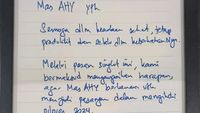 Mas AHY yth
Semoga dlm keadaan sehat, tetap
produktif dan selalu dlm kebahagiaan.
Melalui pesan singkat ini, kami
bermaksud menyampaikan harapan,
agar Mas AHY berkenan utk
menjadi pasangan dalam mengikuti
pilpres 2024.